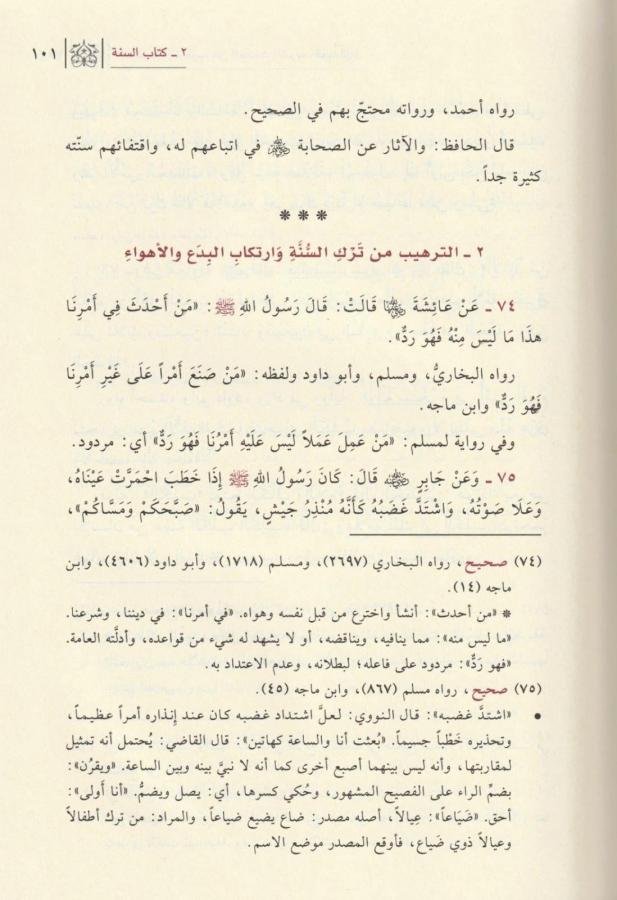 ٢ ـ كتاب السنة ١٠١
رواه أحمد، ورواته محتجّ بهم في الصحيح.
قال الحافظ: والآثار عن الصحابة ﵃ في اتباعهم له، واقتفائهم سنّته
كثيرة جداً.
* * *
٢ ـ الترهيب من تَرْكِ السُّنَّةِ وَارتكاب البِدَع والأهواءِ
٧٤ ـ عَنْ عَائِشَةَ ﵂ قَالَتْ: قَالَ رَسُولُ اللهِ ﷺ: «مَنْ أَحْدَثَ فِي أَمْرِنَا
هذَا مَا لَيْسَ مِنْهُ فَهُوَ رَدٌّ».
رواه البخاريُّ، ومسلم، وأبو داود ولفظه: «مَنْ صَنَعَ أَمْراً عَلَى غَيْرِ أَمْرِنَا
فَهُوَ رَدٌّ» وابن ماجه.
وفي رواية لمسلم: «مَنْ عَمِلَ عَمَلاً لَيْسَ عَلَيْهِ أَمْرُنَا فَهُوَ رَدٌّ» أي: مردود.
٧٥ ـ وَعَنْ جَابِرٍ ﵁ قَالَ: كَانَ رَسُولُ اللهِ ﷺ إِذَا خَطَبَ احْمَرَّتْ عَيْنَاهُ،
وَعَلَا صَوْتُهُ، وَاشْتَدَّ غَضَبُهُ كَأَنَّهُ مُنْذِرُ جَيْشٍ، يَقُولُ: «صَبَّحَكُمْ وَمَسَّاكُمْ»،
(٧٤) صحيح، رواه البخاري (٢٦٩٧)، ومسلم (١٧١٨)، وأبو داود (٤٦٠٦)، وابن
ماجه (١٤).
* «من أحدث»: أنشأ واخترع من قبل نفسه وهواه. «في أمرنا»: في ديننا، وشرعنا.
«ما ليس منه»: مما ينافيه، ويناقضه، أو لا يشهد له شيء من قواعده، وأدلَّته العامة.
«فهو ردٌّ»: مردود على فاعله؛ لبطلانه، وعدم الاعتداد به.
(٧٥) صحيح، رواه مسلم (٨٦٧)، وابن ماجه (٤٥).
• «اشتدَّ غضبه»: قال النووي: لعلَّ اشتداد غضبه كان عند إنذاره أمراً عظيماً،
وتحذيره خَطْباً جسيماً. «بُعثت أنا والساعة كهاتين»: قال القاضي: يُحتمل أنه تمثيل
لمقاربتها، وأنه ليس بينهما أصبع أخرى كما أنه لا نبيَّ بينه وبين الساعة. «ويقرُن»:
بضمِّ الراء على الفصيح المشهور، وحُكي كسرها، أي: يصل ويضمُّ. «أنا أَولى»:
أحق. «ضَيَاعاً»: عِيالاً، أصله مصدر: ضاع يضيع ضياعاً، والمراد: من ترك أطفالاً
وعيالاً ذوي ضَياع، فأوقع المصدر موضع الاسم.